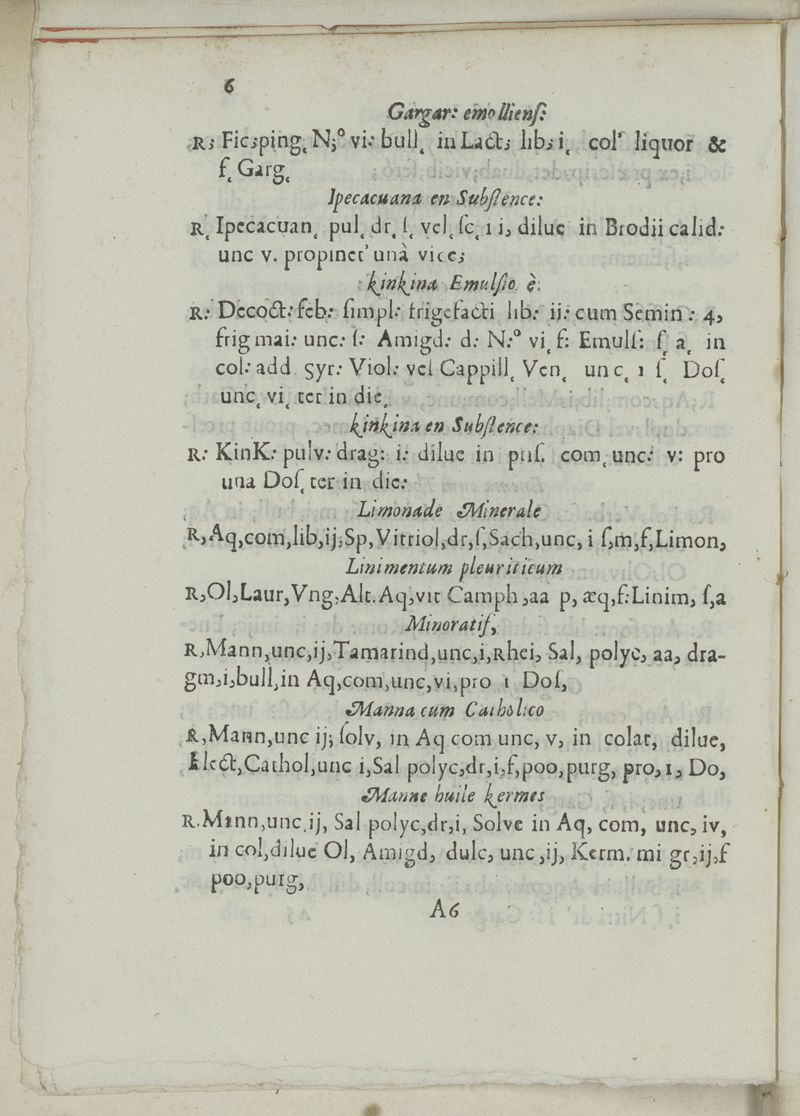 6
Gargar: emolliens:
R; Fic;ping, N;º vi: bull, in Lact; lib; i, col' liquor &
f, Garg,
Ipecacuana en Subſtence:
R, Ipecacuan, pul, dr, ſ, vel, ſc, 1 i, dilue in Brodii calid:
unc v. propinet' unà vice;
kinkina Emulſio. è.
R: Decoct: feb: ſimpl: frigefacti lib: ij: cum Semin: 4,
frig mai: unc: ſ: Amigd: d: N:º vi, f: Emulſ: ſ, a, in
col: add. Syr: Viol: vel Cappill, Ven, unc, 1 ſ, Doſ,
unc, vi, ter in die,
kinkina en Subſtence:
R: KinK: pulv: drag: i: dilue in ptiſ. com, unc: v: pro
una Doſ, ter in die:
Limonade Minerale
R,Aq,com,lib,ij;Sp,Vitriol,dr,ſ,Sach,unc, i ſ,m,f,Limon,
Linimentum pleuriticum
R,Ol,Laur,Vng,Alt.Aq,vit Camph,aa p, æq,f:Linim, ſ,a
Minoratif,
R,Mann,unc,ij,Tamarind,unc,i,Rhei, Sal, polyc, aa, dra-
gm,i,bull,in Aq,com,unc,vi,pro 1 Doſ,
Manna cum Catholico
R,Mann,unc ij; ſolv, in Aq com unc, v, in colat, dilue,
Elect,Cathol,unc i,Sal polyc,dr,i,f,poo,purg, pro,1, Do,
Manne huile kermes
R.Mann,unc,ij, Sal polyc,dr,i, Solve in Aq, com, unc, iv,
in col,dilue Ol, Amigd, dulc, unc,ij, Kerm. mi gr,ij,f
poo,purg,
A6